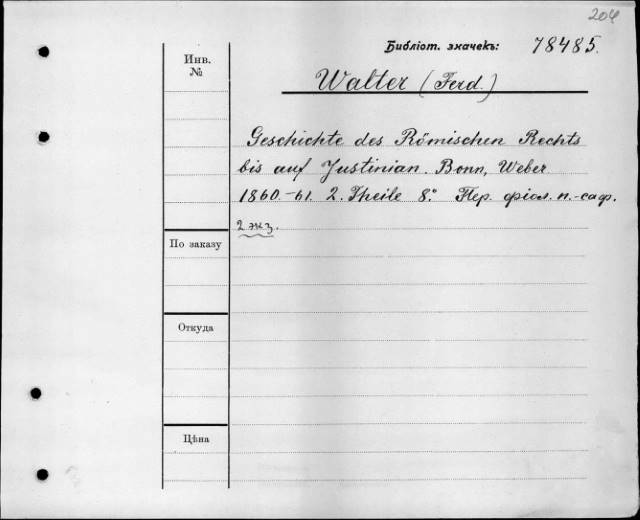 204
Библіот. значекъ: 78485.
Инв.
№
Walter (Ferd.)
Geschichte des Römischen Rechts
bis auf Justinian. Bonn, Weber
1860.-61. 2. Theile 8º. Пер. фіол. п.-саф.
2 экз.
По заказу
Откуда
Цѣна